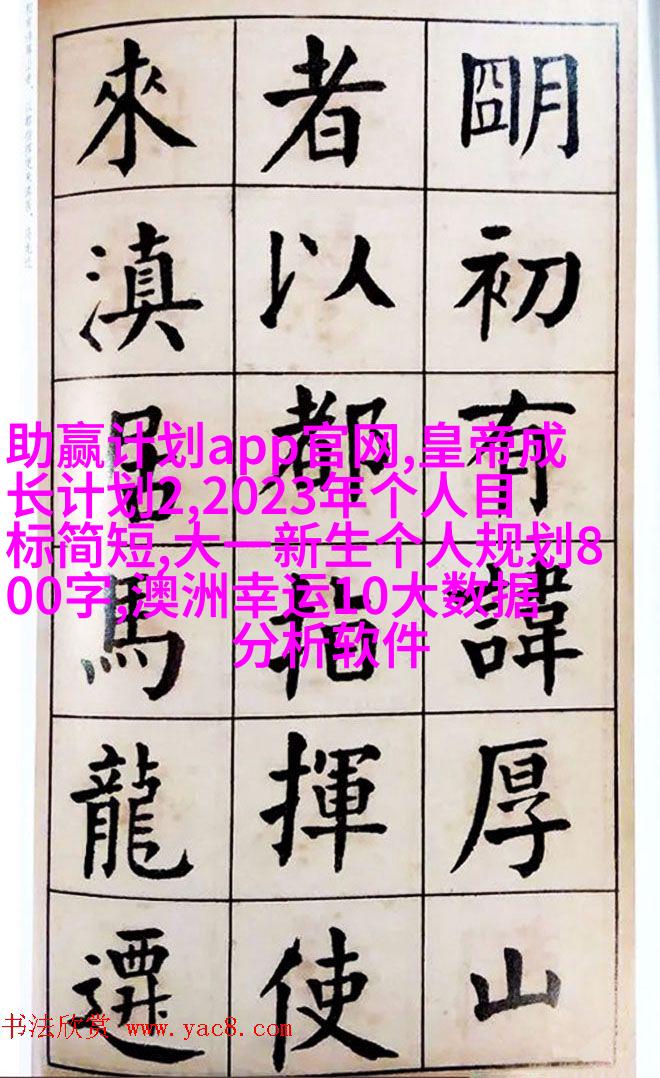 明初有諱厚山
者以都指揮使
來滇居馬龍遷
助赢计划app官网,皇帝成
长计划2,2023年个人目
标简短,大一新生个人规划8
00字,澳洲幸运10大数据
分析软件
书法欣赏 www.yac8.com